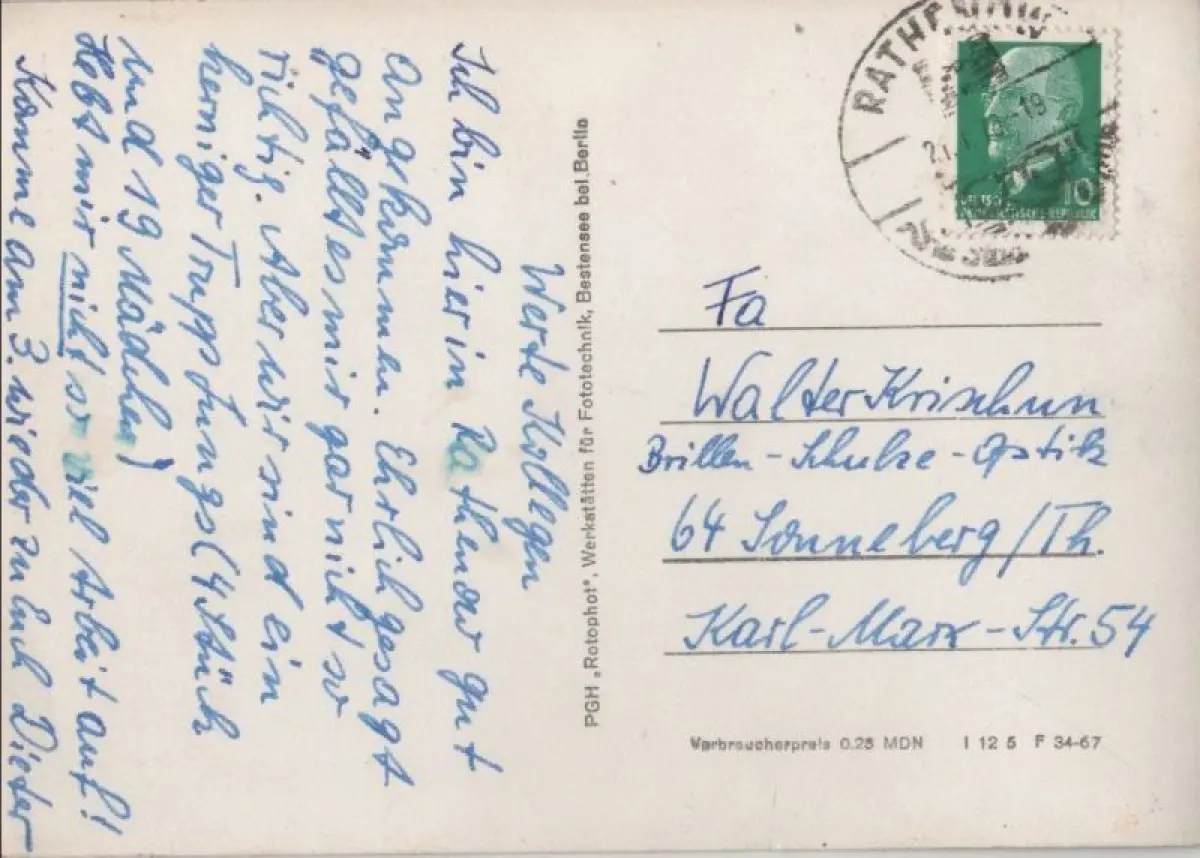 Werte Kollegen
Ich bin hier in Rathenow gut
angekommen. Ehrlich gesagt
gefällt es mir gar nicht so
richtig. Aber wir sind ein
kerniger Trupp Jungs (4 Stück
und 19 Mädchen)
Hebt mir nicht so viel Arbeit auf!
Komme am 3. wieder zu Euch Dieter
PGH „Rotophot", Werkstätten für Fototechnik, Bestensee bei Berlin
RATHENOW
10
DEUTSCHE
DEMOKRATISCHE REPUBLIK
Fa
Walter Krischun
Brillen-Schulze-Optik
64 Sonneberg/Th.
Karl-Marx-Str. 54
Verbraucherpreis 0.25 MDN I 12 5 F 34-67